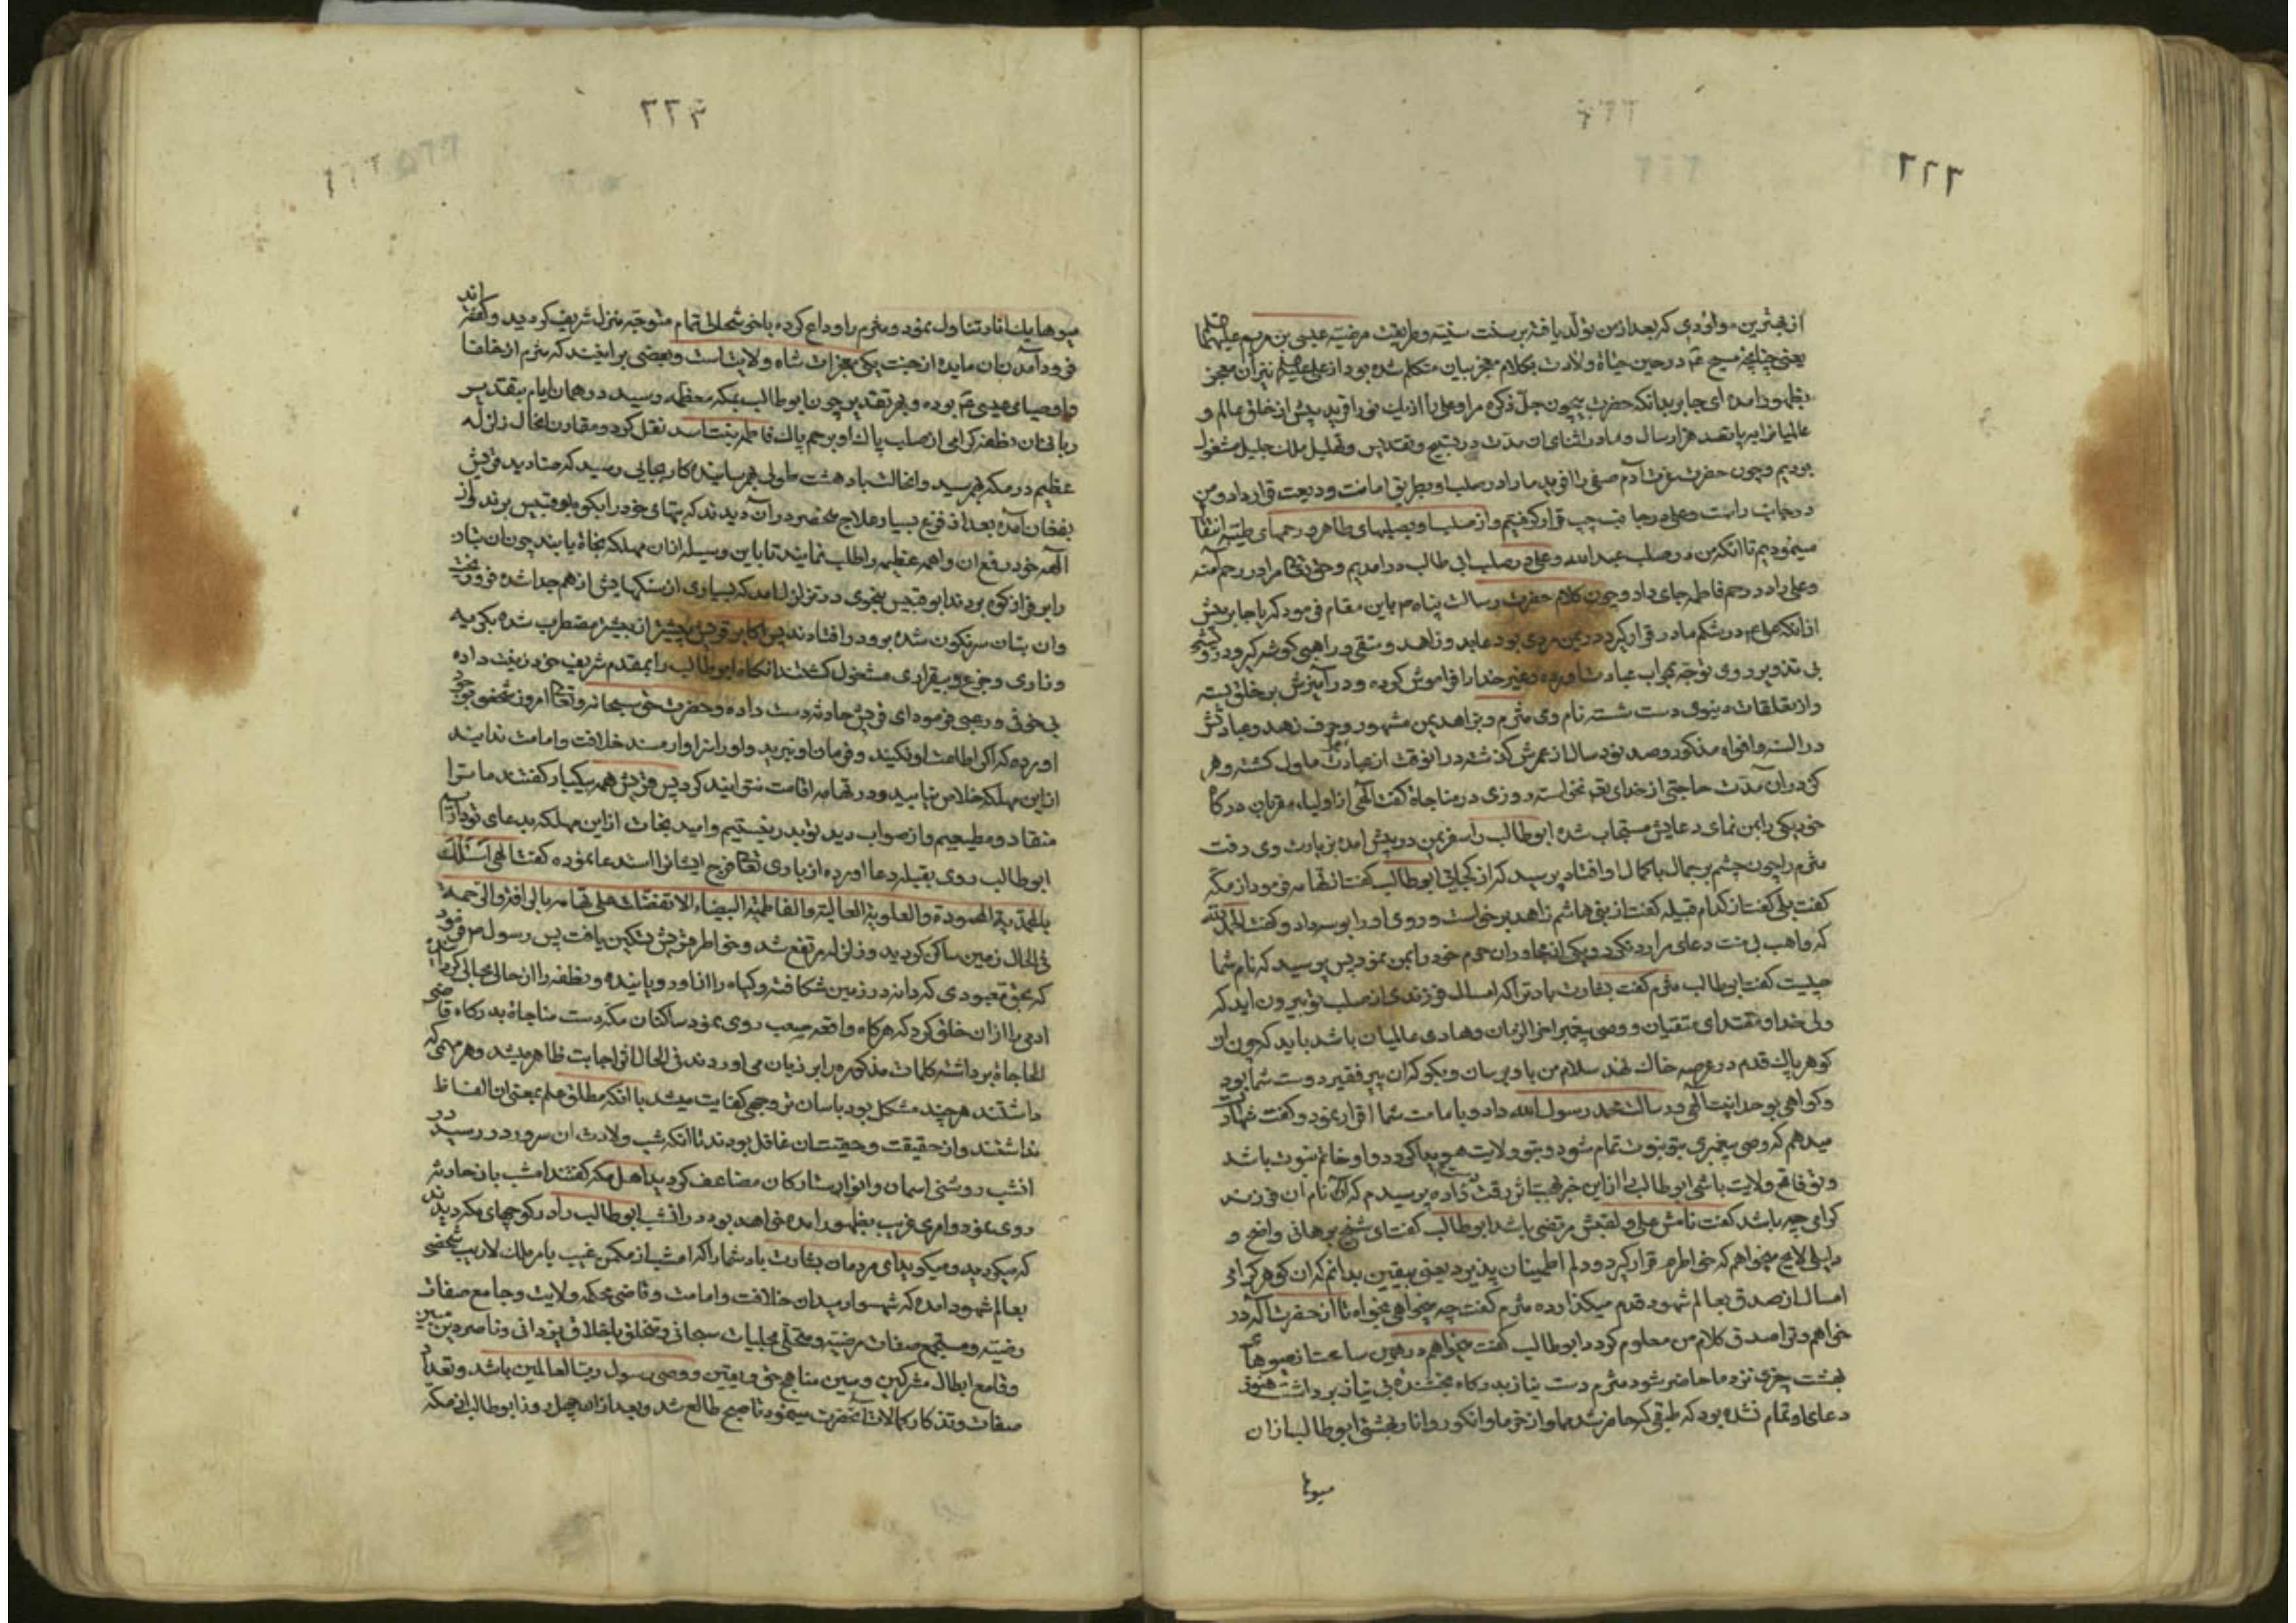 از بهترین مولودی که بعد از من تولد یافته بر سنت سنیه و طریقت مرضیه عیسی بن مریم علیهما
یعنی چنانچه مسیح ع‍م در حین حیاة ولادت بکلام معجز بیان متکلم شده بود از علی نیز آن معجز
بظهور آمده ای جابر بدانکه حضرت بیچون جل ذکره مرا و علی را از یک نور آفرید پیش از خلق عالم و
عالمیان به پانصد هزار سال و ما در اثنای آن مدت در تسبیح و تقدیس و تهلیل ملک جلیل مشغول
بودیم و چون حضرت عزت آدم صفی را آفرید ما را در صلب او بطریق امانت و ودیعت قرار داد و من
در جانب راست و علی در جانب چپ قرار گرفتیم و از صلب او بصلبهای طاهر و رحمهای طیبه انتقال
مینمودیم تا آنکه من در صلب عبدالله و علی در صلب ابی طالب در آمدیم و حق تعالی مرا در رحم آمنه
و علی را در رحم فاطمه جای داد و چون کلام حضرت رسالت پناه باین مقام فرمود که یا جابر پیش
از آنکه علی در شکم مادر قرار گیرد در یمن مردی بود عابد و زاهد و متقی و راهبی گوشه گیر و در
بی تذویر روی توجه بمحراب عبادت آورده و غیر خدا را فراموش کرده و در آمیزش بر خلق بسته
و از تعلقات دنیوی دست شسته نام وی مثرم و بزاهد یمن مشهور و حرف زهد و عبادتش
در السنه و افواه مذکور و صد نود سال از عمرش گذشته در آنوقت از عبادت ملول گشته و هر
کز در آن مدت حاجتی از خدای تعالی نخواسته روزی در مناجاة گفت الهی از اولیا و مقربان درگاه
خود یکی را بمن نمای دعایش مستجاب شده ابوطالب را سفر یمن در پیش آمده بزیارت وی رفت
مثرم را چون چشم بر جمال با کمال او افتاد پرسید که از کجائی ابوطالب گفت از تهامه فرمود از مکه
گفت بلی گفت از کدام قبیله گفت از بنی هاشم زاهد برخواست و روی او را بوسه داد و گفت الحمد لله
که واهب بی منت دعای مرا رد نکرد و یکی از مجاوران حرم خود را بمن نمود پس پرسید که نام شما
چیست گفت ابوطالب مثرم گفت بشارت باد ترا که امسال فرزندی از صلب تو بیرون آید که
ولی خدا و مقتدای متقیان و وصی پیغمبر آخر الزمان و هادی عالمیان باشد باید که چون آن
گوهر پاک قدم در عرصه خاک نهد سلام من باو برسان و بگو که آن پیر فقیر دوست شما بود
و گواهی بوحدانیت الهی و رسالت محمد رسول الله داد و بامامت شما اقرار نمود و گفت شهادت
میدهم که وصی پیغمبری بتو نبوت تمام شود و بتو ولایت هویدا گردد و او خاتم نبوت باشد
و تو فاتح ولایت باشی ابوطالب را از این خبر بهجت اثر رقت داده پرسیدم که آیا نام آن فرزند
کرامی چه باشد گفت نامش علی و لقبش مرتضی باشد ابوطالب گفت ای شیخ برهانی واضح و
دلیلی لایح میخواهم که خاطرم قرار گیرد و دلم اطمینان پذیرد یعنی بیقین بدانم که آن گوهر کرامی
امسال از صدق بعالم شهود قدم میگذارد مثرم گفت چه میخواهی بخواه تا از حضرت اله در
خواهم و ترا صدق کلام من معلوم گردد ابوطالب گفت میخواهم در همین ساعت از میوهای
بهشت چیزی نزد ما حاضر شود مثرم دست نیاز بدرگاه بخشنده بی نیاز برداشت هنوز
دعای او تمام نشده بود که طبقی حاضر شد مملو از خرما و انگور و انار بهشتی ابوطالب از آن
میوها
٢٢٤
میوها یک انار تناول نمود و مثرم را وداع کرده با خوشحالی تمام متوجه منزل شریف گردید و گفته اند
فرود آمدن آن مایده از جنت یکی معجزات شاه ولایت است و بعضی برانیند که مثرم از خلفا
و اوصیای عیسی ع‍م بوده و بهر تقدیر چون ابوطالب بمکه معظمه رسید در همان ایام بتقدیر
ربانی آن نطفه کرامی از صلب پاک او برحم پاک فاطمه بنت اسد نقل کرد و مقارن آنحال زلزله
عظیم در مکه بهم رسید و آنحالت باد هشت طولی بهم رسانیده کار بجایی رسید که صنادید قریش
بفغان آمده بعد از فزع بسیار علاج منحصر در آن دیدند که بتهای خود را بکوه ابو قبیس برند و از
آلهه خود رفع آن واهمه عظیمه را طلب نمایند تا باین وسیله از آن مهلکه نجاة یابند چون آن بتان
را بر فراز کوه بردند ابو قبیس بنحوی در تزلزل آمد که بسیاری از سنگهایش از هم جدا شده فرو ریخت
و آن بتان سرنگون شده برو در افتادند پس اکابر قریش پیشتر از پیشتر مضطرب شده بگریه
و زاری و جزع و بیقراری مشغول گشتند آنگاه ابوطالب را بمقدم شریف خود زینت داده
بی خوف و رعبی فرمود ای قریش حادثه دست داده و حضرت حق سبحانه و تعالی امروز شخصی بوجود
آورده که اگر اطاعت او نکنید و فرمان او نبرید و او را سزاوار مسند خلافت و امامت ندانید
از این مهلکه خلاص نیابید و در تهامه اقامت نتوانید کرد پس قریش همه بیکبار گفتند ما ترا
منقاد و مطیعیم و از صواب دید تو بدر نیستیم و امید نجات از این مهلکه بدعای تو داریم
ابوطالب روی بقبله دعا آورده از باری تعالی فرج ایشان را استدعا نموده گفت الهی اسئلک
بالمحمدیة المحمودة والعلویة العالیة والفاطمیة البیضاء الا تفضلت علی تهامه بالرافة والرحمة
فی الحال زمین ساکن گردید و زلزله مرتفع شد و خاطر قریش تسکین یافت پس رسول فرمود
که بحق معبودی که دانه در زمین شکافته و گیاه را از او رویانیده و نطفه را از حالی بحالی گردانیده
آدمی را از آن خلق کرد که هرگاه واقعه صعب روی نمود ساکنان مکه دست مناجاة بدرگاه قاضی
الحاجاة برداشته کلمات مذکوره را بر زبان می آوردند فی الحال اثر اجابت ظاهر میشد و هر مهمی که
داشتند هر چند مشکل بود باسان تر وجهی کفایت میشد با آنکه مطلق علم بمعنی آن الفاظ
نداشتند و از حقیقت و حقیت آن غافل بودند تا آنکه شب ولادت آن سرور در رسید در
آنشب روشنی آسمان و انوار ستارگان مضاعف گردید اهل مکه گفتند امشب باز حادثه
روی نمود و امری غریب بظهور آمده خواهد بود در آنشب ابوطالب را در کوچهای مکه دیدند
که میگردید و میگوید ای مردمان بشارت باد شما را که امشب از مکمن غیب بامر ملک لاریب شخصی
بعالم شهود آمده که شهسوار میدان خلافت و امامت و قاضی محکمه ولایت و جامع صفات
رضیه و مستجمع صفات مرضیه و متحلی بحلیات سبحانی و متخلق باخلاق یزدانی و ناصر دین مبین
و قامع ابطال مشرکین و مبین مناهج حق و یقین و وصی رسول رب العالمین باشد و تعداد
صفات و تذکار کمالات آنحضرت مینمود تا صبح طالع شد و بعد از آن چهل روز ابوطالب از مکه